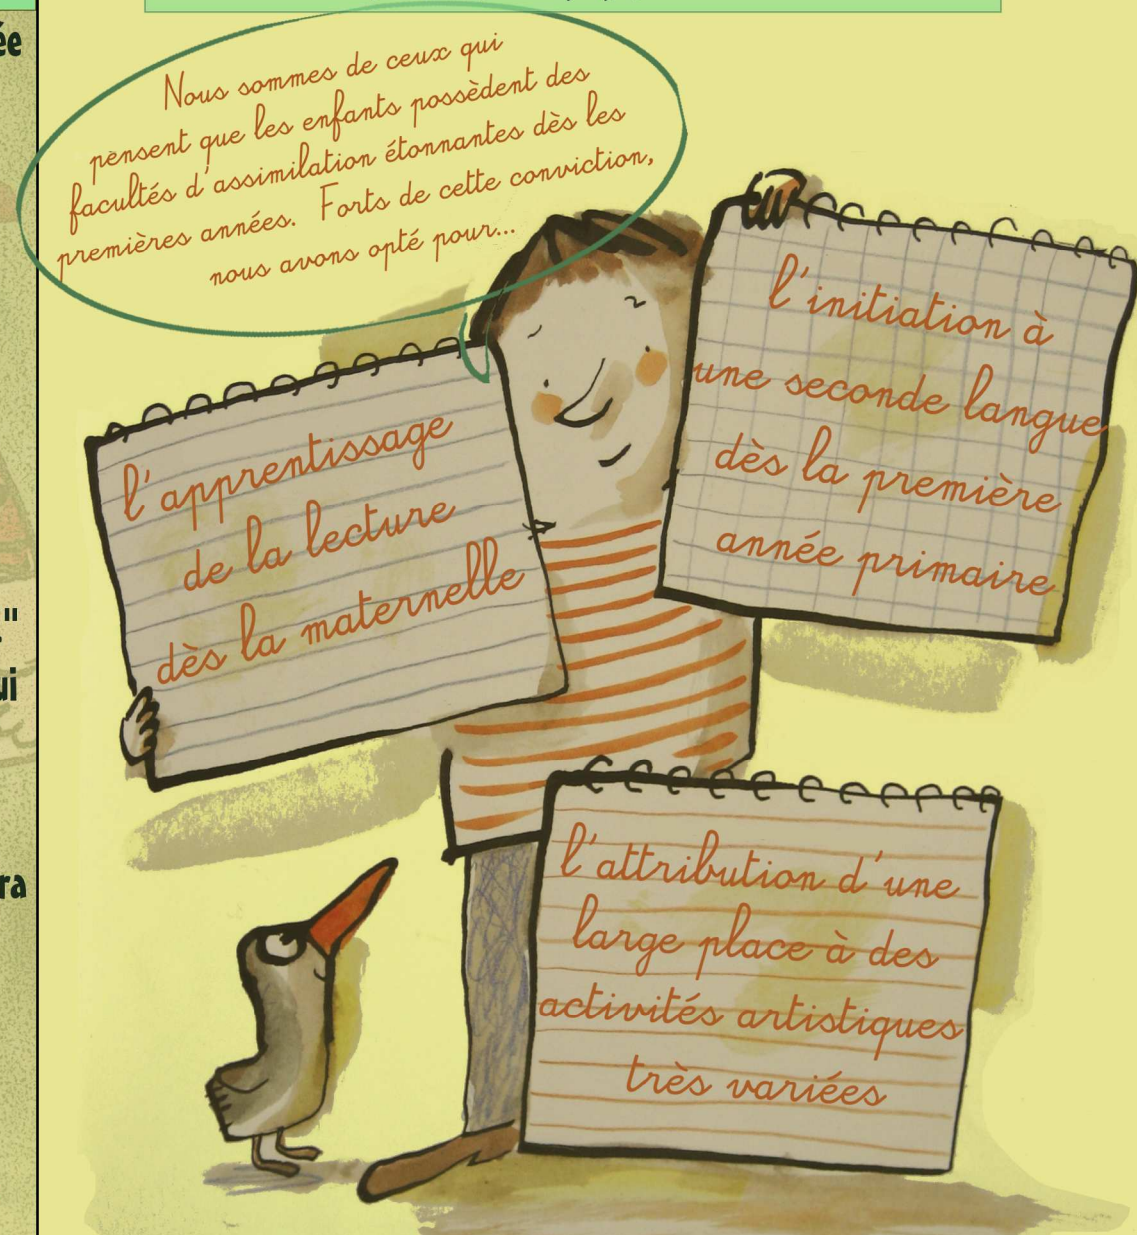 ée
"
ui
ra
Nous sommes de ceux qui
pensent que les enfants possèdent des
facultés d'assimilation étonnantes dès les
premières années. Forts de cette conviction,
nous avons opté pour...
l'apprentissage
de la lecture
dès la maternelle
l'initiation à
une seconde langue
dès la première
année primaire
l'attribution d'une
large place à des
activités artistiques
très variées